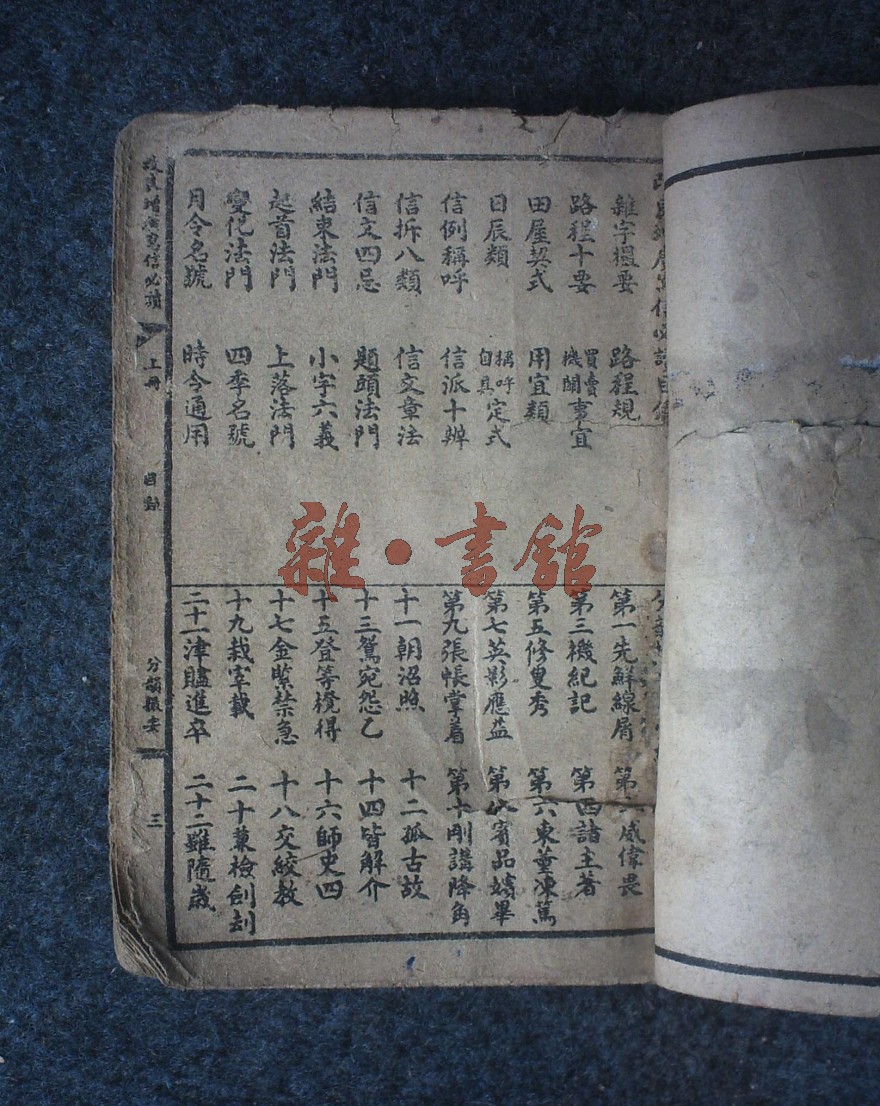 雜字撮要　路程規
路程十要　買賣機關事宜
田屋契式　用宜類
日辰類　稱呼自具定式
信例稱呼　信派十辦
信拆八類　信文章法
信文四忌　題頭法門
結束法門　小字六義
起首法門　上落法門
變化法門　四季名號
月令名號　時令通用
第一先鮮線屑　第　威偉畏
第三機紀記　第四諸主著
第五修叟秀　第六東董凍篤
第七英影應益　第八賓品嬪畢
第九張帳掌着　第十剛講降角
十一朝沼照　十二孤古故
十三鴛宛怨乙　十四皆解介
十五登等櫈得　十六師史四
十七金緊禁急　十八交絞教
十九栽宰載　二十兼檢劍刦
二十一津贐進卒　二十二雖隨歲
改良增廣寫信必讀　上冊　目錄　分韻撮要　三
雜·書館